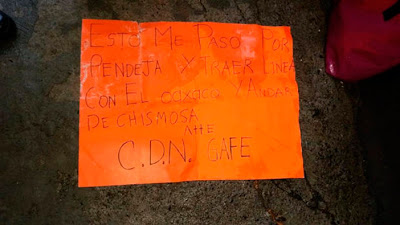 ESTO ME PASO POR
PENDEJA Y TRAER LINEA
CON EL oaxaco Y ANDAR
DE CHISMOSA
Atte
C.D.N. GAFE